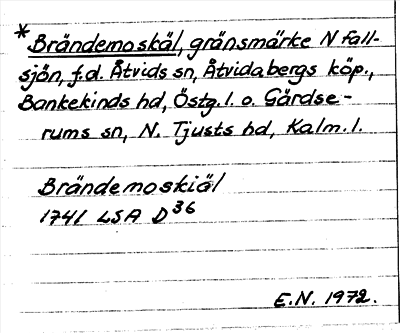 *Brändemoskäl, gränsmärke N Fall-
sjön, f.d. Åtvids sn, Åtvidabergs köp.,
Bankekinds hd, Östg. l. o. Gärdse-
rums sn, N. Tjusts hd, Kalm. l.
Brändemoskiäl
1741 LSA D36
E.N. 1972.